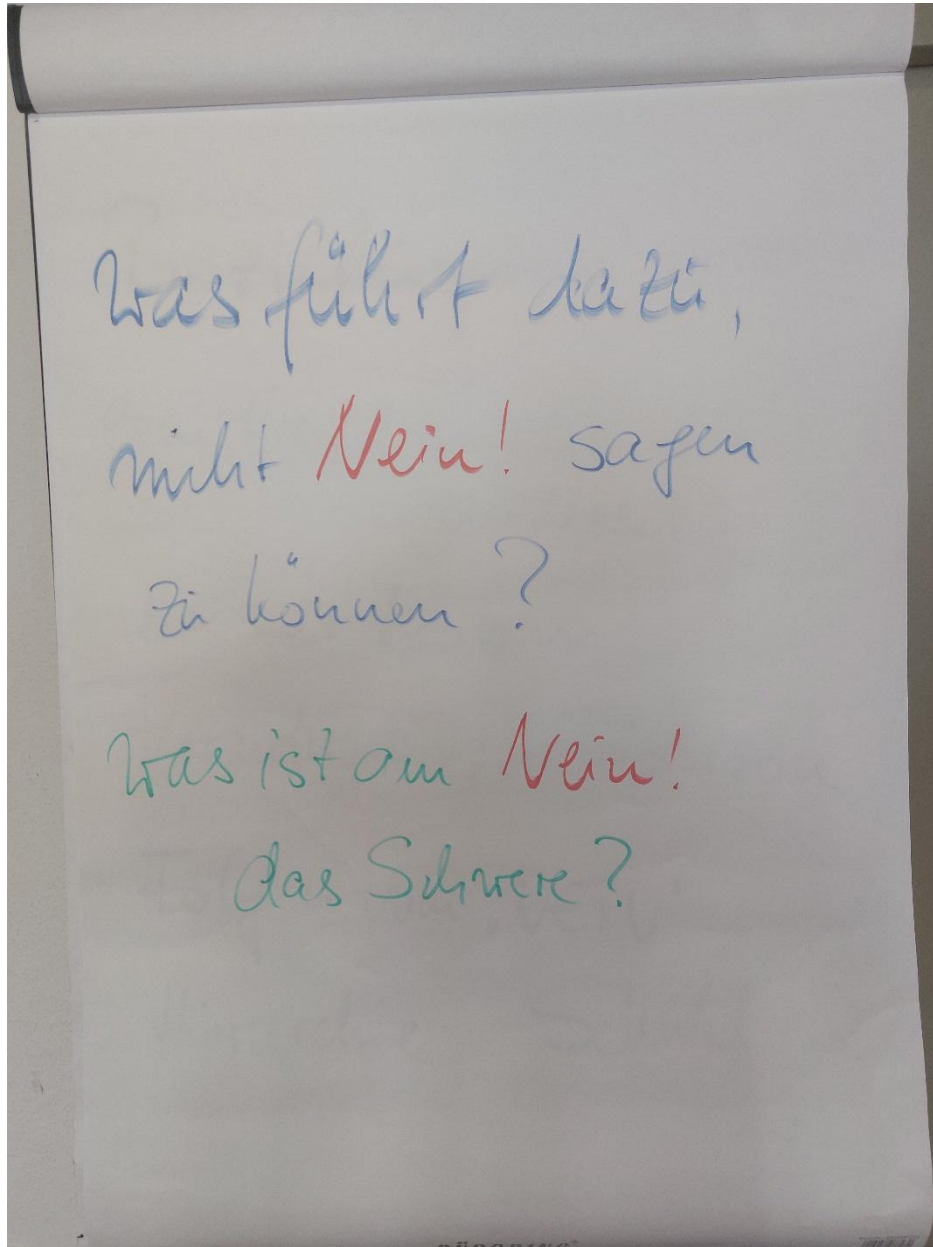 Was führt dazu,
nicht Nein! sagen
zu können?
Was ist am Nein!
das Schwere?